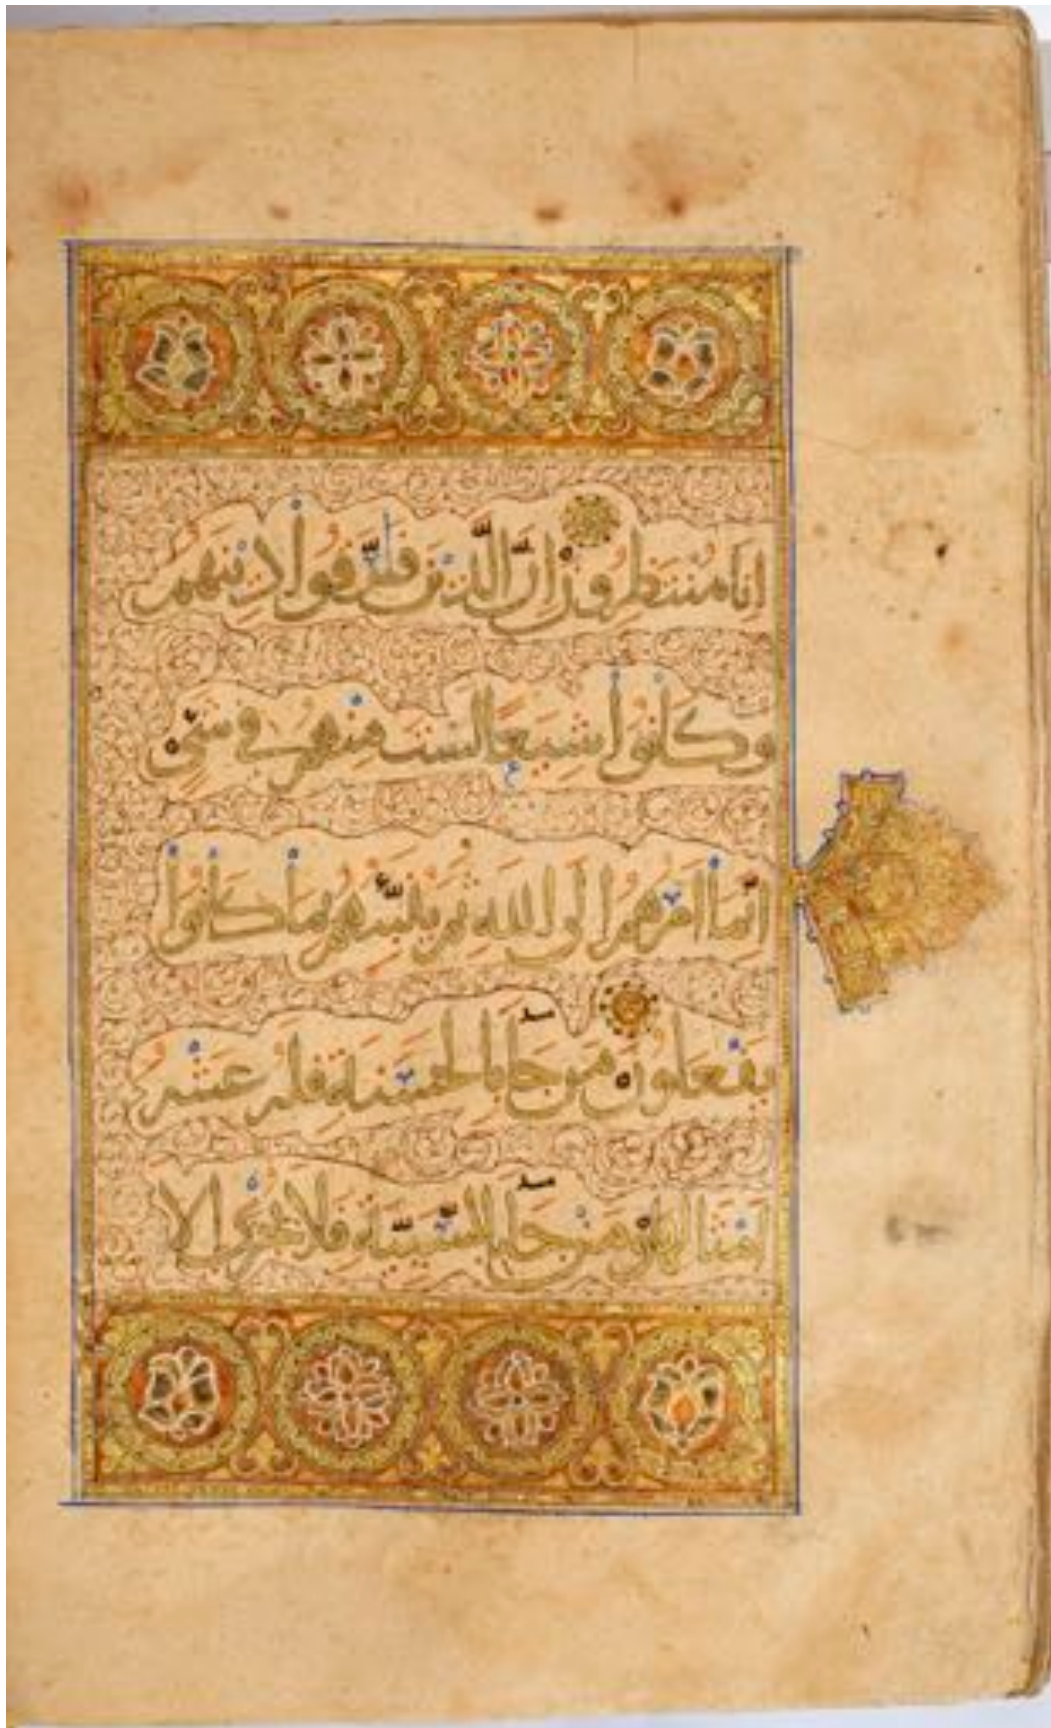 انا منتظرون ان الذين فرقوا دينهم
وكانوا شيعا لست منهم في شي
انما امرهم الى الله ثم ينبئهم بما كانوا
يفعلون من جا بالحسنة فله عشر
امثالها ومن جا بالسيئة فلا يجزى الا